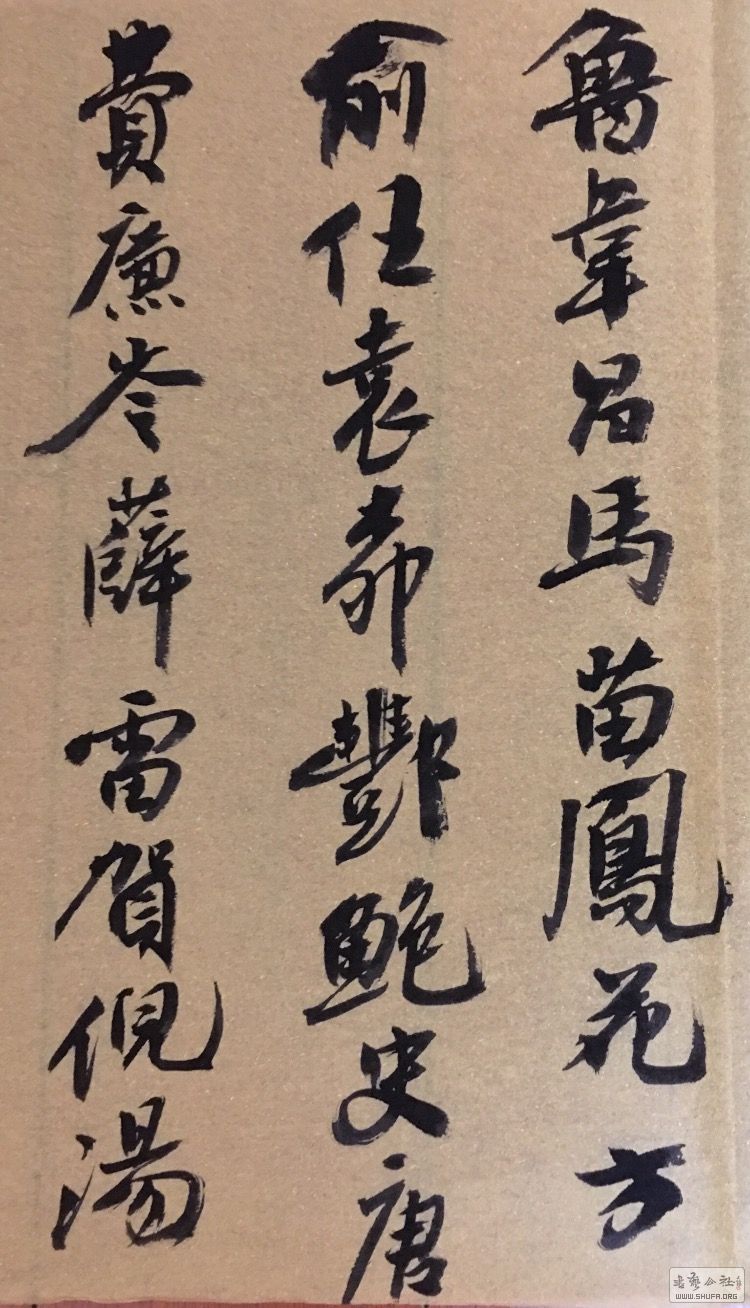 魯韋昌馬苗鳳花方
俞任袁柳酆鮑史唐
費廉岑薛雷賀倪湯
书法公社
WWW.SHUFA.ORG